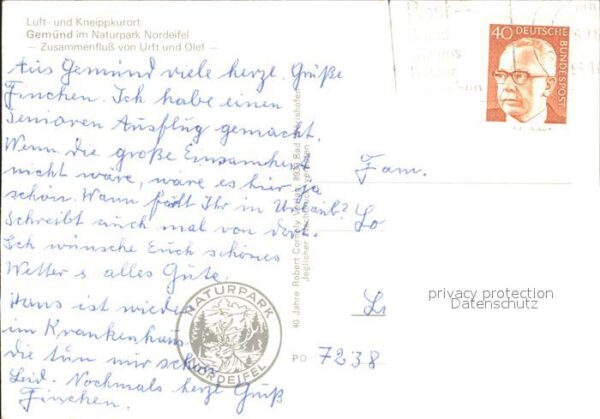 Luft- und Kneippkurort
Gemünd im Naturpark Nordeifel
– Zusammenfluß von Urft und Olef –
Aus Gemünd viele herzl. Grüße
Finchen. Ich habe einen
Senioren Ausflug gemacht.
Wenn die große Einsamkeit
nicht wäre, wäre es hier ja
schön. Wann fährt Ihr in Urlaub?
Schreibt auch mal von dort.
Ich wünsche Euch schönes
Wetter u alles Gute.
Hans ist wieder
im Krankenhaus
die tun mir schon
Leid. Nochmals herzl Grüß
Finchen.
40
DEUTSCHE
BUNDESPOST
Fam.
Lo
privacy protection
Datenschutz
PO 7238
40 Jahre Robert Verlag 8939 Bad Wörishofen
Jeglicher Nachdruck
NATURPARK
NORDEIFEL